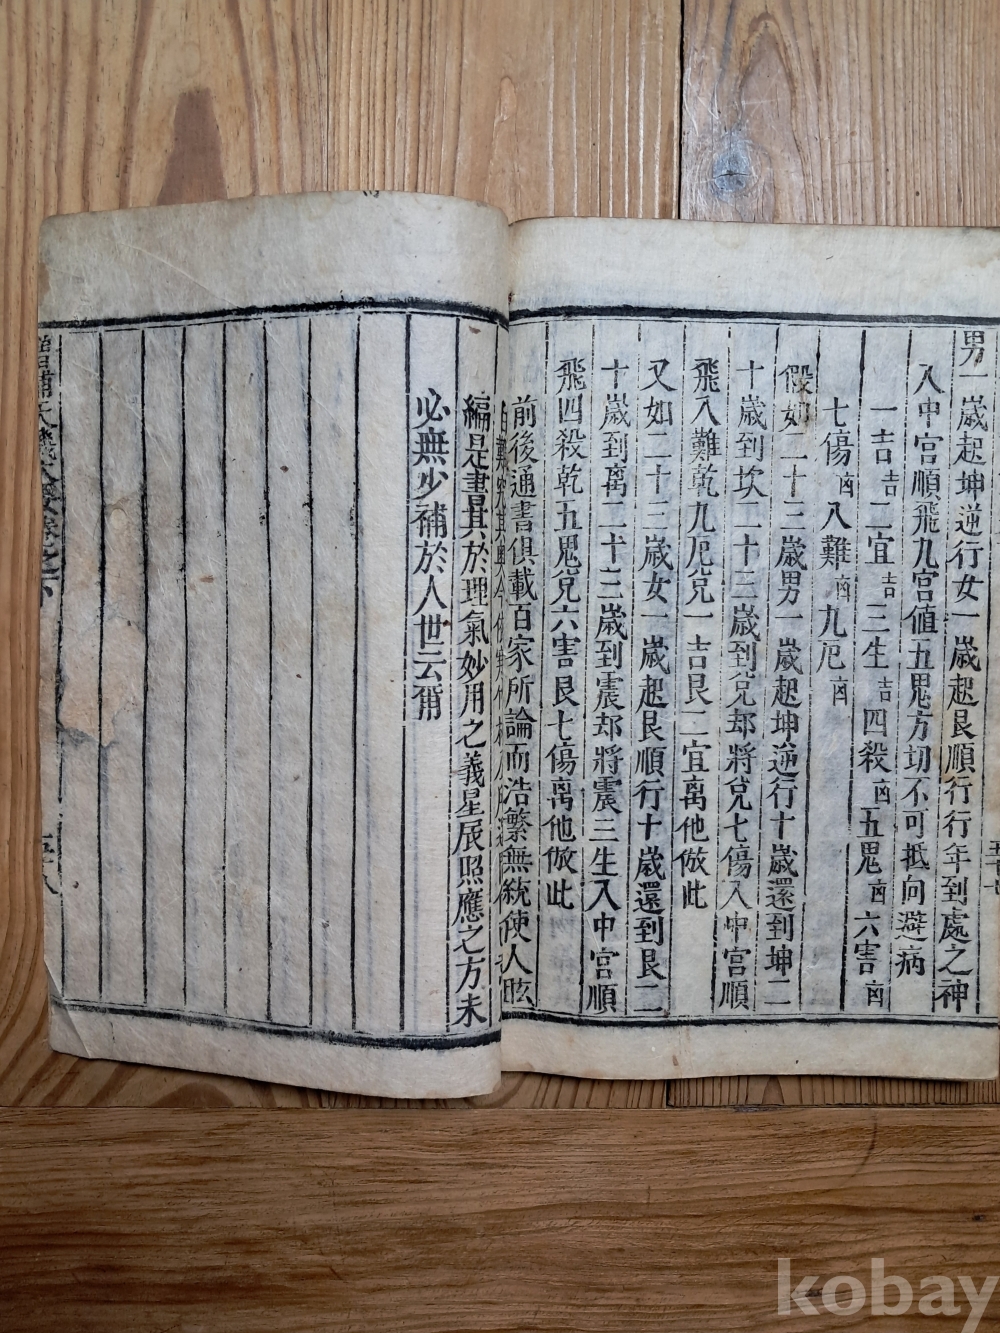 男一歲起坤逆行女一歲起艮順行行年到處之神
入中宮順飛九宮値五鬼方切不可抵向避病
一吉吉二宜吉三生吉四殺凶五鬼凶六害凶
七傷凶八難凶九厄凶
假如二十三歲男一歲起坤逆行十歲還到坤二
十歲到坎二十三歲到兌却將兌七傷入中宮順
飛八難乾九厄兌一吉艮二宜离他倣此
又如二十三歲女一歲起艮順行十歲還到艮二
十歲到离二十三歲到震却將震三生入中宮順
飛四殺乾五鬼兌六害艮七傷离他倣此
前後通書俱載百家所論而浩繁無統使人眩
編是書其於理氣妙用之義星辰照應之方未
必無少補於人世云爾
卷之下
kobay